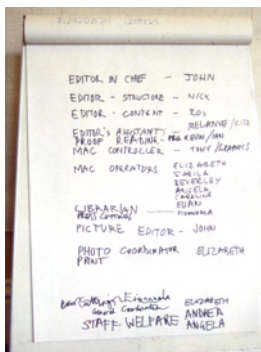 EDITOR IN CHEF - JOHN
EDITOR - STRUCTURE - NICK
EDITOR - CONTENT - ROS
EDITOR'S ASSISTANTS - MELANIE/RITA
PROOF READING - MEG KEON/IAN
MAC CONTROLLER - TONY/GRAPHICS
MAC OPERATORS ELIZABETH
SHEILA
BEVERLEY
ANGELA
CAROLINE
EUAN
LIBRARIAN FIONNUALA
PRESS CUTTINGS
PICTURE EDITOR - JOHN
PHOTO COORDINATOR ELIZABETH
PRINT
Fionnuala ELIZABETH
General Coordination ANDREA
STAFF WELFARE ANGELA